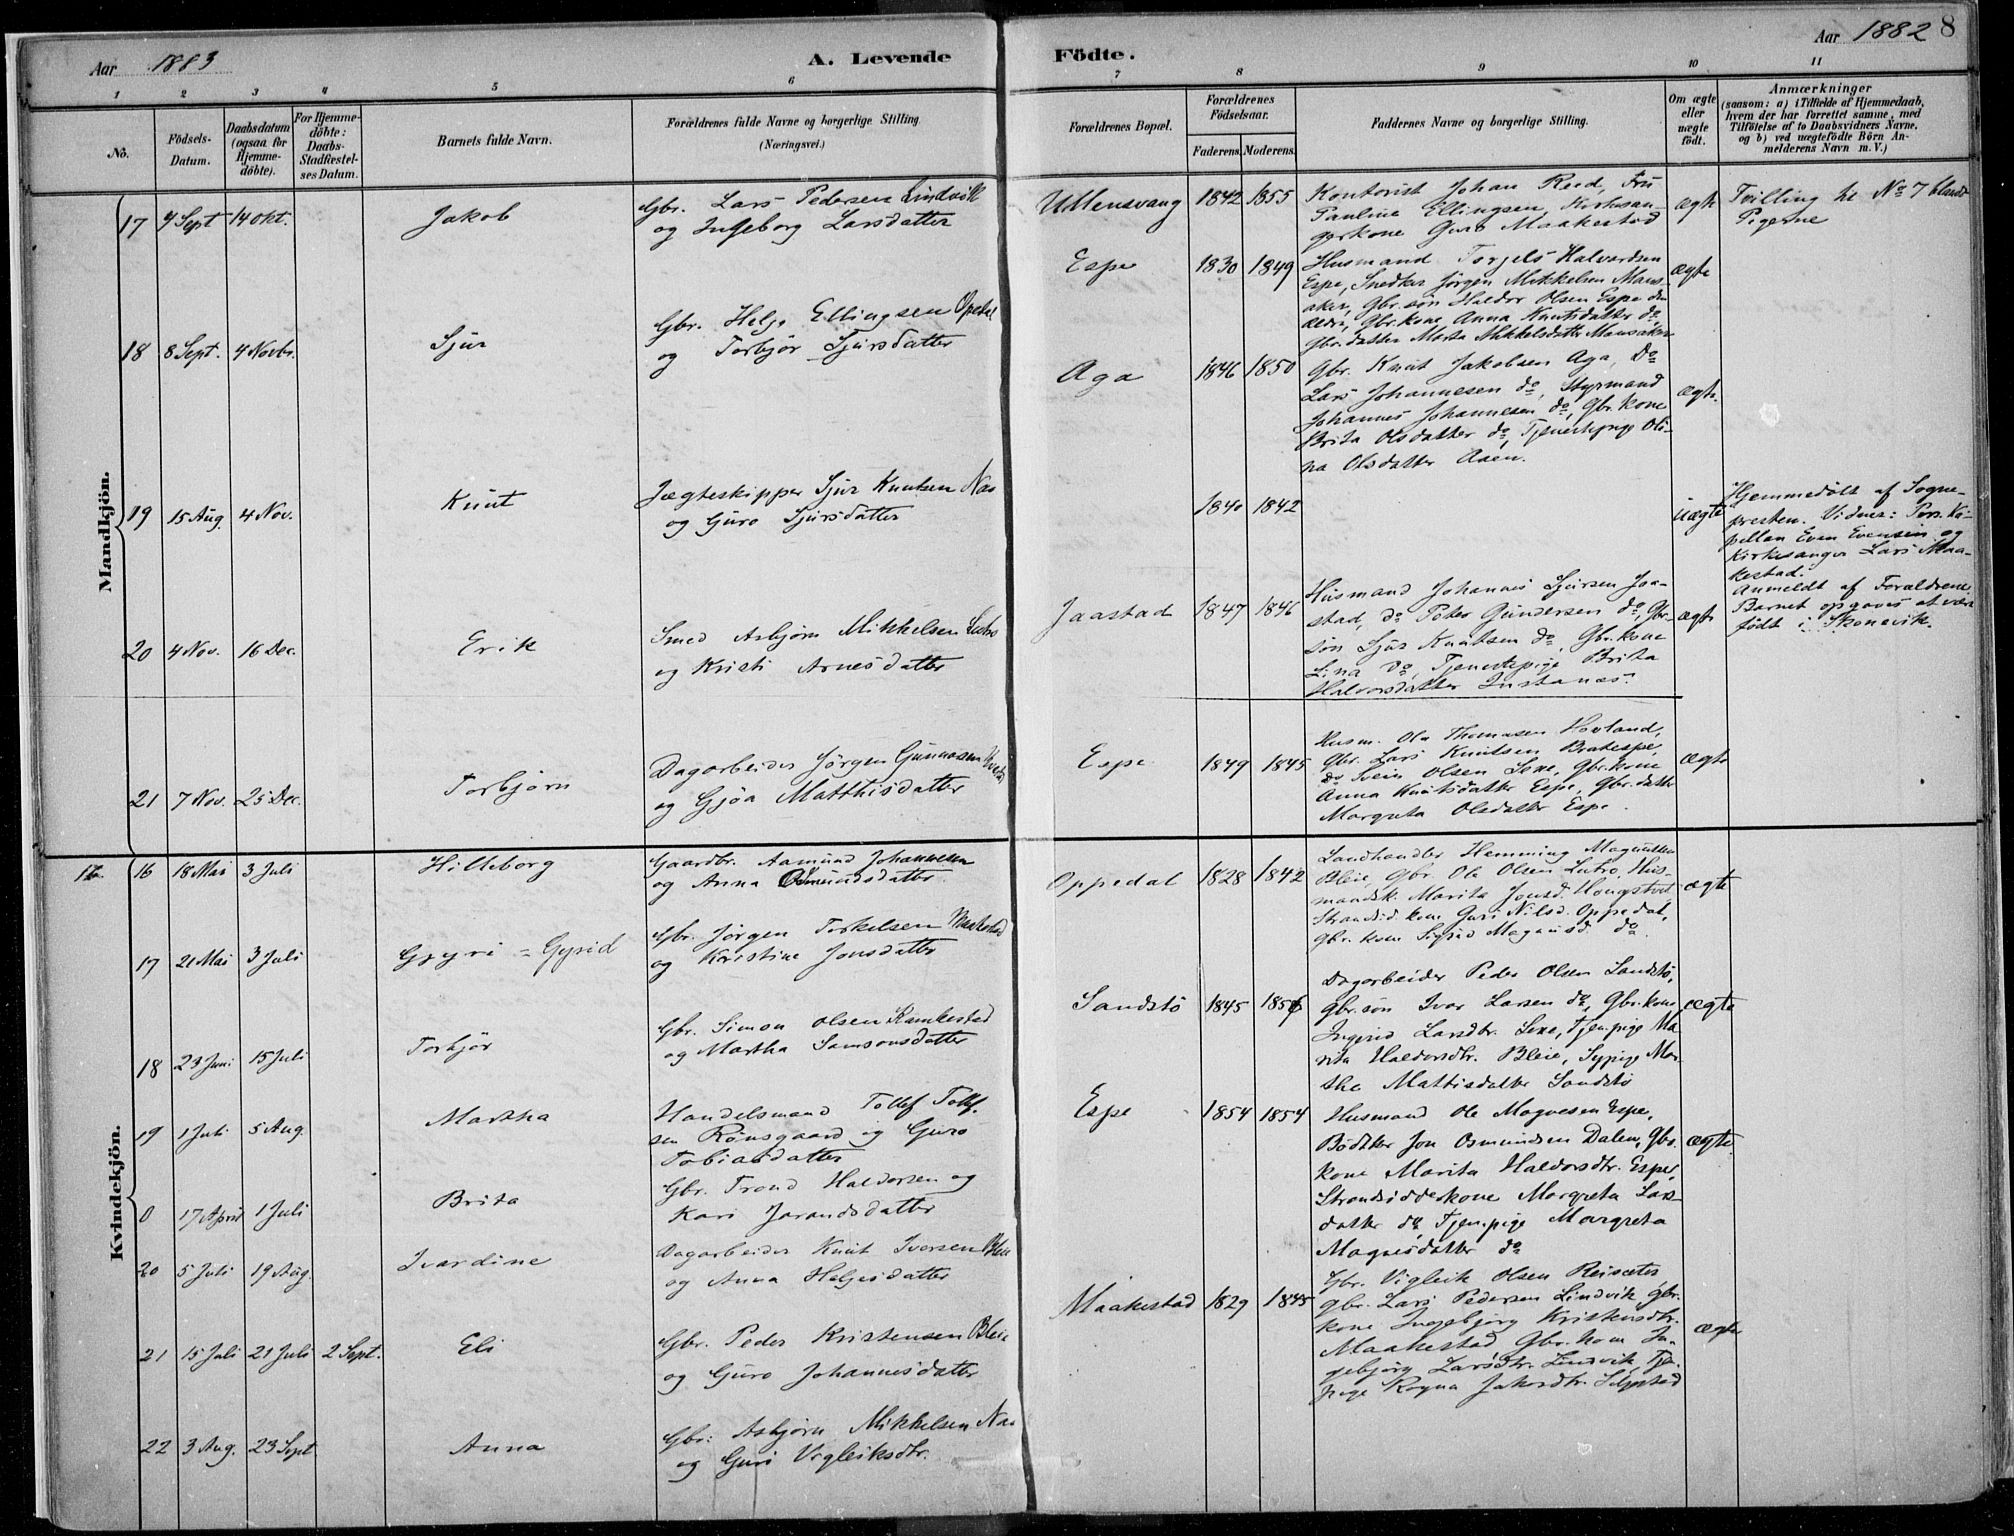 Aar 1883
A. Levende
1 2 3 4 5 6
No.
Födsels-
Datum.
Daabsdatum
(ogsaa for
Hjemme-
döbte).
For Hjemme-
döbte:
Daabs-
Stadfæstel-
ses Datum.
Barnets fulde Navn.
Forældrenes fulde Navne og borgerlige Stilling
(Næringsvei.)
Mandkjön.
17 4 Sept 14 Okt. Jakob
Gbr. Lars Pedersen Lindvik
og Ingeborg Larsdatter
18 8 Sept. 4 Novbr. Sjur
Gbr. Helge Ellingsen Opedal
og Torbjör Sjursdatter
19 15 Aug. 4 Nov. Knut
Jægteskipper Sjur Knutsen Naa
og Guro Sjursdatter
20 4 Nov. 16 Dec. Erik
Smed Asbjörn Mikkelsen Lutro
og Kristi Arnesdatter
21 7 Nov. 25 Dec. Torbjörn
Dagarbeider Jörgen Gunnarsen
og Gjöa Matthisdatter
Kvindekjön.
16 18 Mai 3 Juli Hilleborg
Gaardbr. Aamund Johannesen
og Anna Osmundsdatter
17 21 Mai 3 Juli Gyyri = Gyrid
Gbr. Jörgen Torkelsen Maakestad
og Kristine Jonsdatter
18 23 Juni 15 Juli Torbjör
Gbr. Simon Olsen
og Martha Samsonsdatter
19 1 Juli 5 Aug. Martha
Handelsmand Tollef Tollef-
sen Rönsgaard og Guro
Tobiasdatter
0 17 April 1 Juli Brita
Gbr. Trond Haldorsen og
Kari Jorandsdatter
20 5 Juli 19 Aug. Ivardine
Dagarbeider Knut Iversen Bleie
og Anna Helgesdatter
21 15 Juli 21 Juli 2 Sept. Eli
Gbr. Peder Kristensen Bleie
og Guro Johannesdatter
22 3 Aug. 23 Sept Anna
Gbr. Asbjörn Mikkelsen Naa
og Guri Vigleiksdtr.
Födte.
Aar 1882 8
7 8 9 10 11
Forældrenes Bopæl.
Forældrenes
Födselsaar.
Faderens. Moderens.
Faddernes Navne og borgerlige Stilling.
Om ægte
eller
uægte
födt.
Anmærkninger
(saasom: a) i Tilfælde af Hjemmedaab,
hvem der har forrettet samme, med
Tilföielse af to Daabsvidners Navne.
og b) ved uægtefödte Börn An-
melderens Navn m. V.)
Ullensvang 1842 1855
Kontorist Johan Reed, Fru
Pauline Ellingsen, Kirkesan-
gerkone Guro Maakestad
ægte
Tvilling se No 7 blandt
Pigerne
Espe 1830 1849
Husmand Torgels Halvardsen
Espe, Snedker Jörgen Mikkelsen Mans-
aker, Gbr. sön Haldor Olsen Espe
Gbr. kone Anna Knutsdatter do
Gbr. datter Marta Mikkelsdatter Mansaker
ægte
Aga 1846 1850
Gbr. Knut Jakobsen Aga, Do
Lars Johannesen do, Styrmand
Johannes Johannesen do, Gbr. kone
Brita Olsdatter do, Tjenestepige Oli-
na Olsdatter Aaen.
ægte
1840 1842
uægte
Hjemmedöbt af Sogne-
presten. Vidner: Pers. Ka-
pellan Even Evensen og
Kirkesanger Lars Maa-
kestad.
Anmeldt af Forældrene
Barnet opgaves at være
födt i Skonevik.
Jaastad 1847 1846
Husmand Johanes Sjursen Jaa-
stad, do Peter Gundersen do, Gbr.
sön Sjur Knutsen do, Gbr. kone
Lina do, Tjenestepige Brita
Halvorsdatter Instanæs.
ægte
Espe 1849 1845
Husm. Ola Thomasen Hovland,
Gbr. Lars Knutsen Bratespe,
do Svein Olsen Sexe, Gbr. kone
Anna Knutsdatter Espe, Gbr. datter
Margreta Olsdatter Espe.
ægte
Oppedal 1828 1842
Landhandler Hemming Magnussen
Bleie, Gbr. Ole Olsen Lutro, Hus-
mandsk. Marita Jonsd.
Strandsid. kone Guri Nilsd. Oppedal,
Gbr. kone Sigrid Magnusd. do
ægte
Sandstö 1845 1856
Dagarbeider Peder Olsen Sandstö,
Gbr. sön Ivar Larsen do, Gbr. kone
Ingerid Larsdtr. Sexe, Tjen. pige Ma-
rita Haldorsdtr. Bleie, Sypige Mar-
tha Mattisdatter Sandstö
ægte
Espe 1854 1854
Husmand Ole Magnesen Espe,
Bödtker Jon Osmundsen Dalen, Gbr.
kone Marita Haldorsdtr. Espe,
Strandsiddeskone Margreta Lars-
datter do, Tjen. pige Margreta
Magnesdatter do
ægte
Maakestad 1829 1845
Gbr. Vigleik Olsen Reisæter,
Gbr. Lars Pedersen Lindvik, Gbr.
kone Ingebjörg Kristensdtr.
Maakestad Gbr. kone In-
gebjörg Larsdtr. Lindvik, Tje-
pige Ragna
ægte